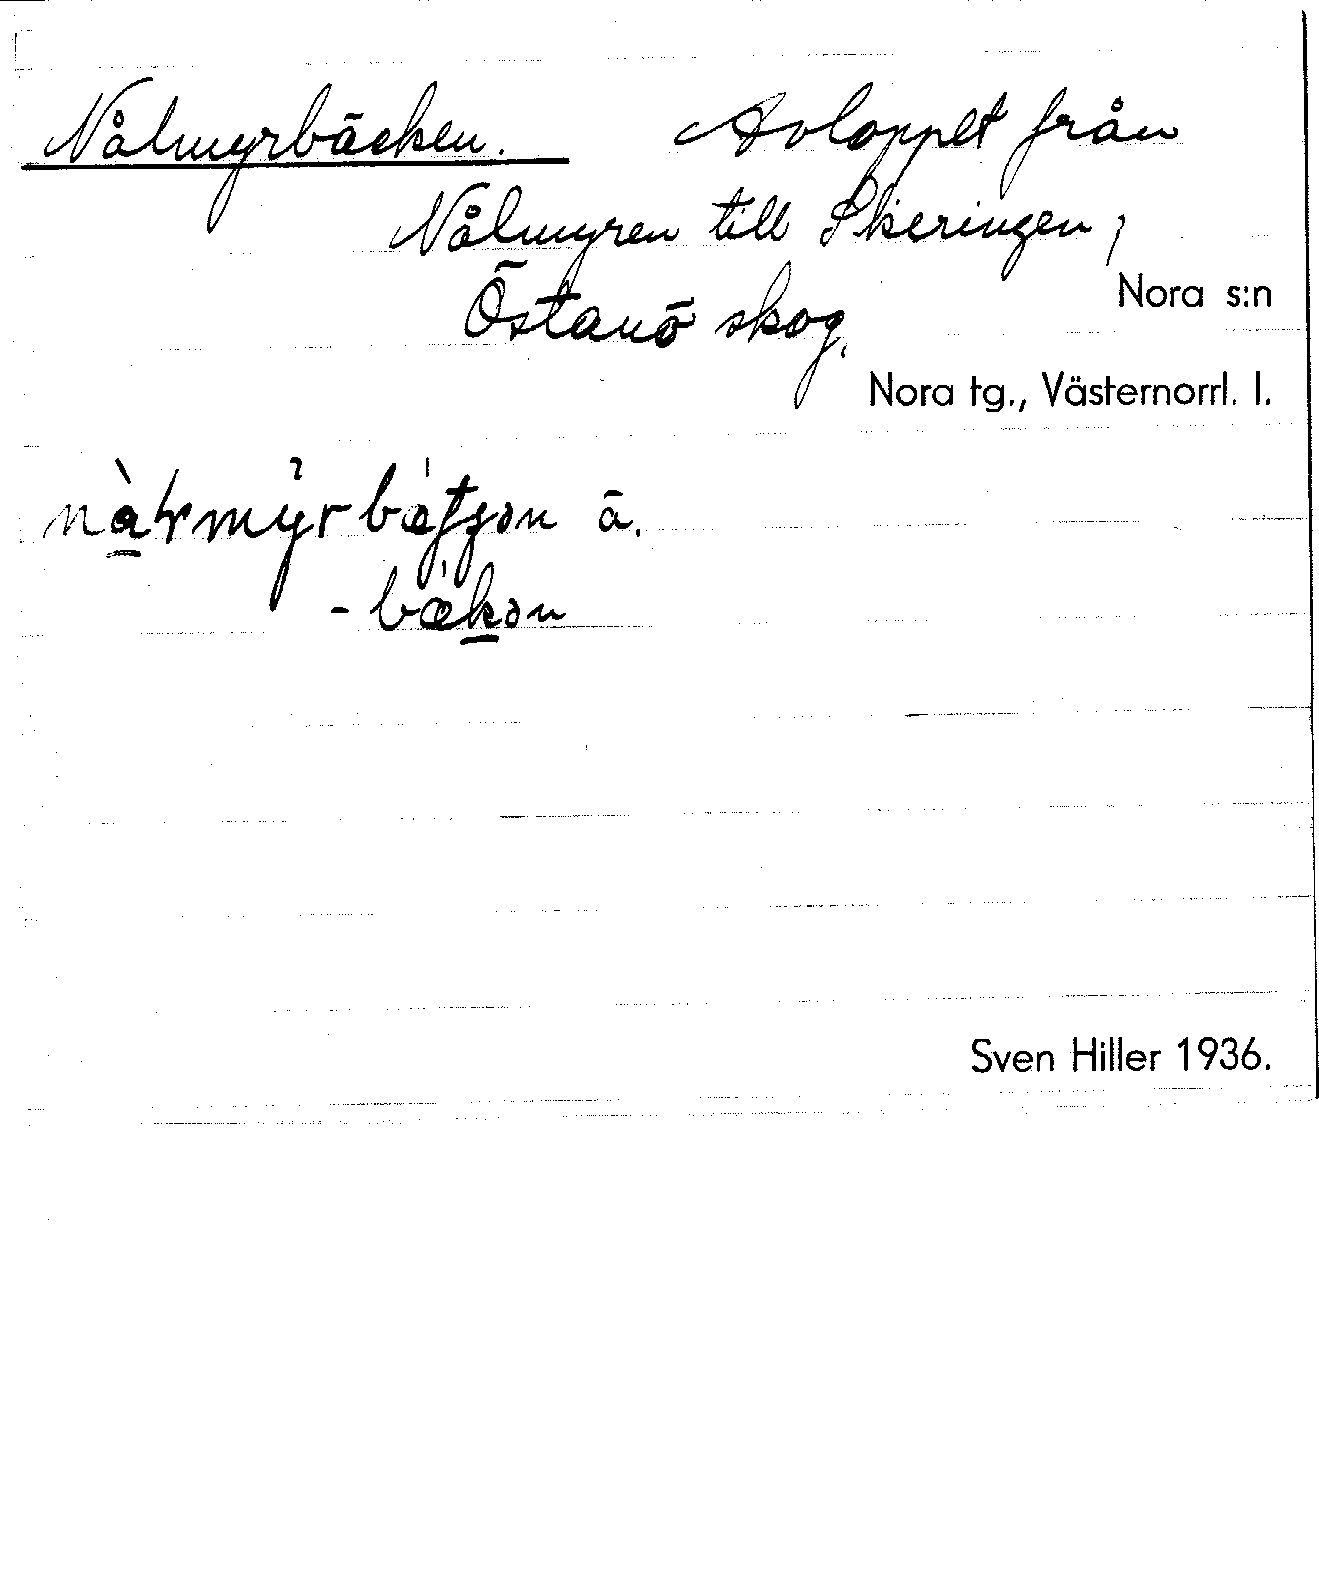 Nålmyrbäcken. Avloppet från
Nålmyren till Skeringen,
Östanö skog.
Nora s:n
Nora tg., Västernorrl. l.
ä.
Sven Hiller 1936.